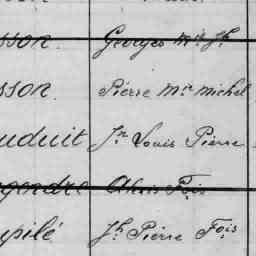 sson. Georges Mie Jh
sson. Pierre Mie Michel
uduit Jn Louis Pierre
gendre Fois
upilé Jh Pierre Fois